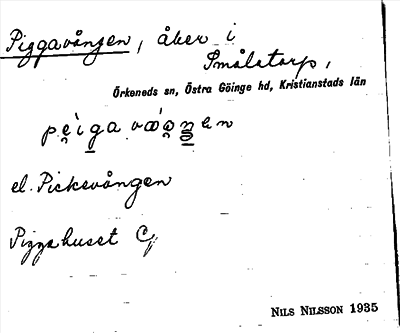 Piggavången, åker i
Småletorp,
Örkeneds sn, Östra Göinge hd, Kristianstads län
el. Pickevången
Piggahuset
NILS NILSSON 1935